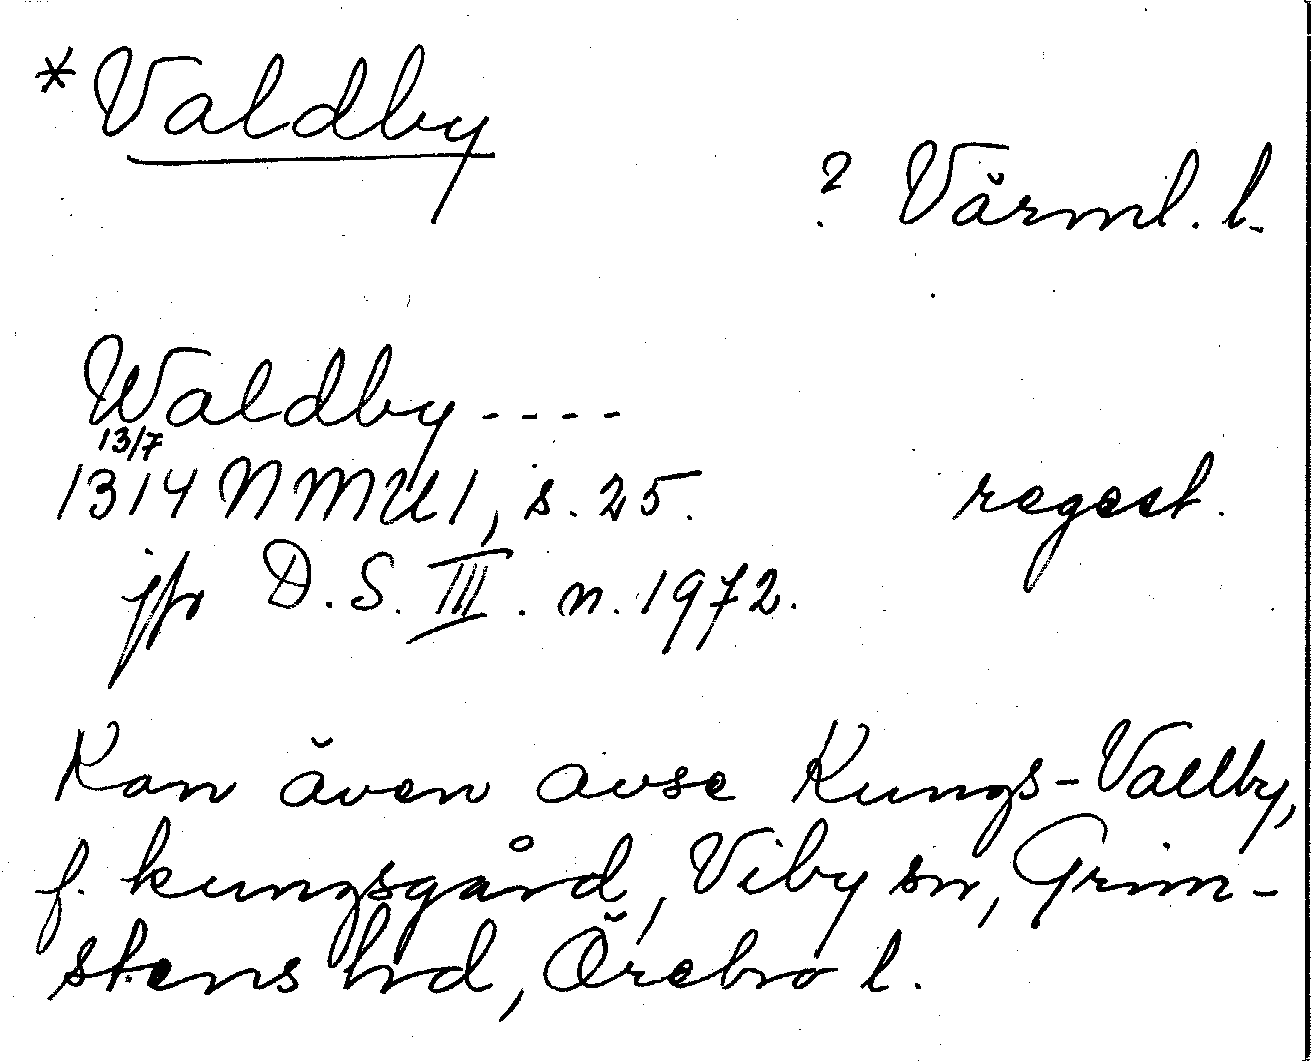 *Valdby
? Värml. l.
Waldby ----
13/7
1314 NMU 1, s. 25. regest.
jfr D.S. III. n. 1972.
Kan även avse Kungs-Vallby,
f. kungsgård, Viby sn, Grim-
stens hd, Örebro l.